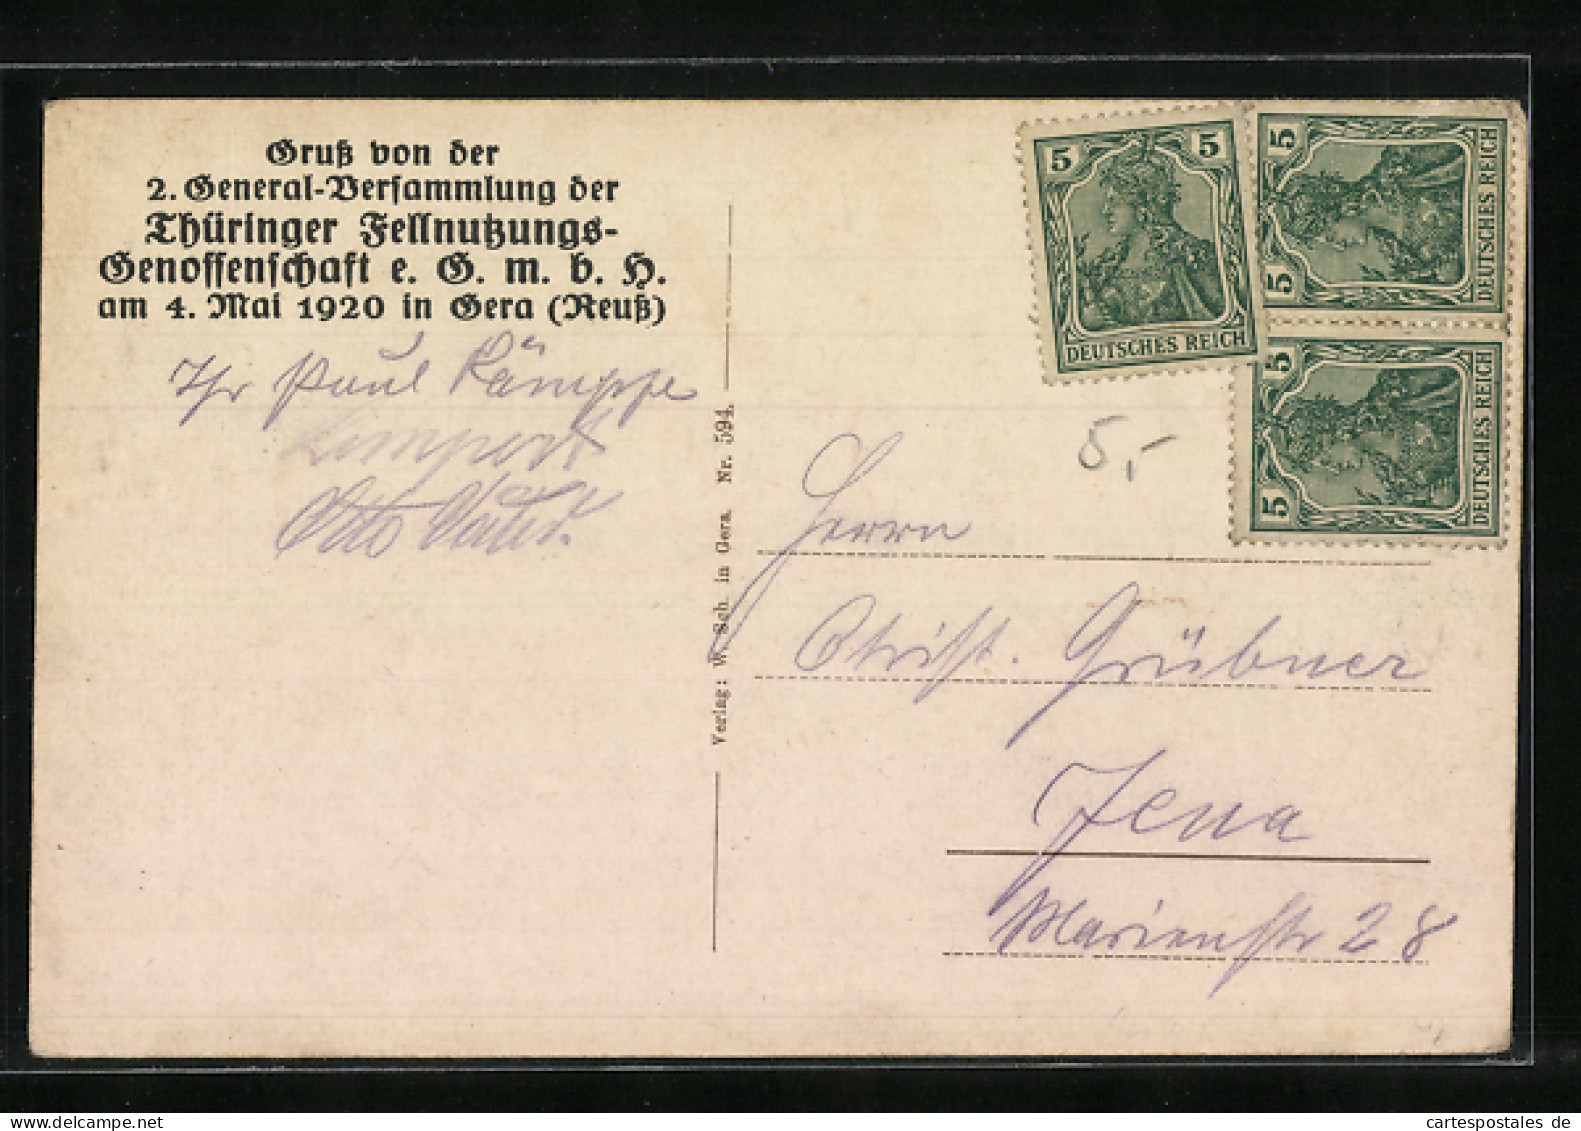 Gruß von der
2. General-Versammlung der
Thüringer Fellnutzungs-
Genossenschaft e. G. m. b. H.
am 4. Mai 1920 in Gera (Reuß)
Ihr Paul Kämpfe
Lempert
Otto
Verlag: W. Sch. in Gera. Nr. 594.
5 5
DEUTSCHES REICH
5 5
DEUTSCHES REICH
5 5
DEUTSCHES REICH
5,-
Herrn
Christ. Grübner
Jena
Marienstr 28
cartespostales.de